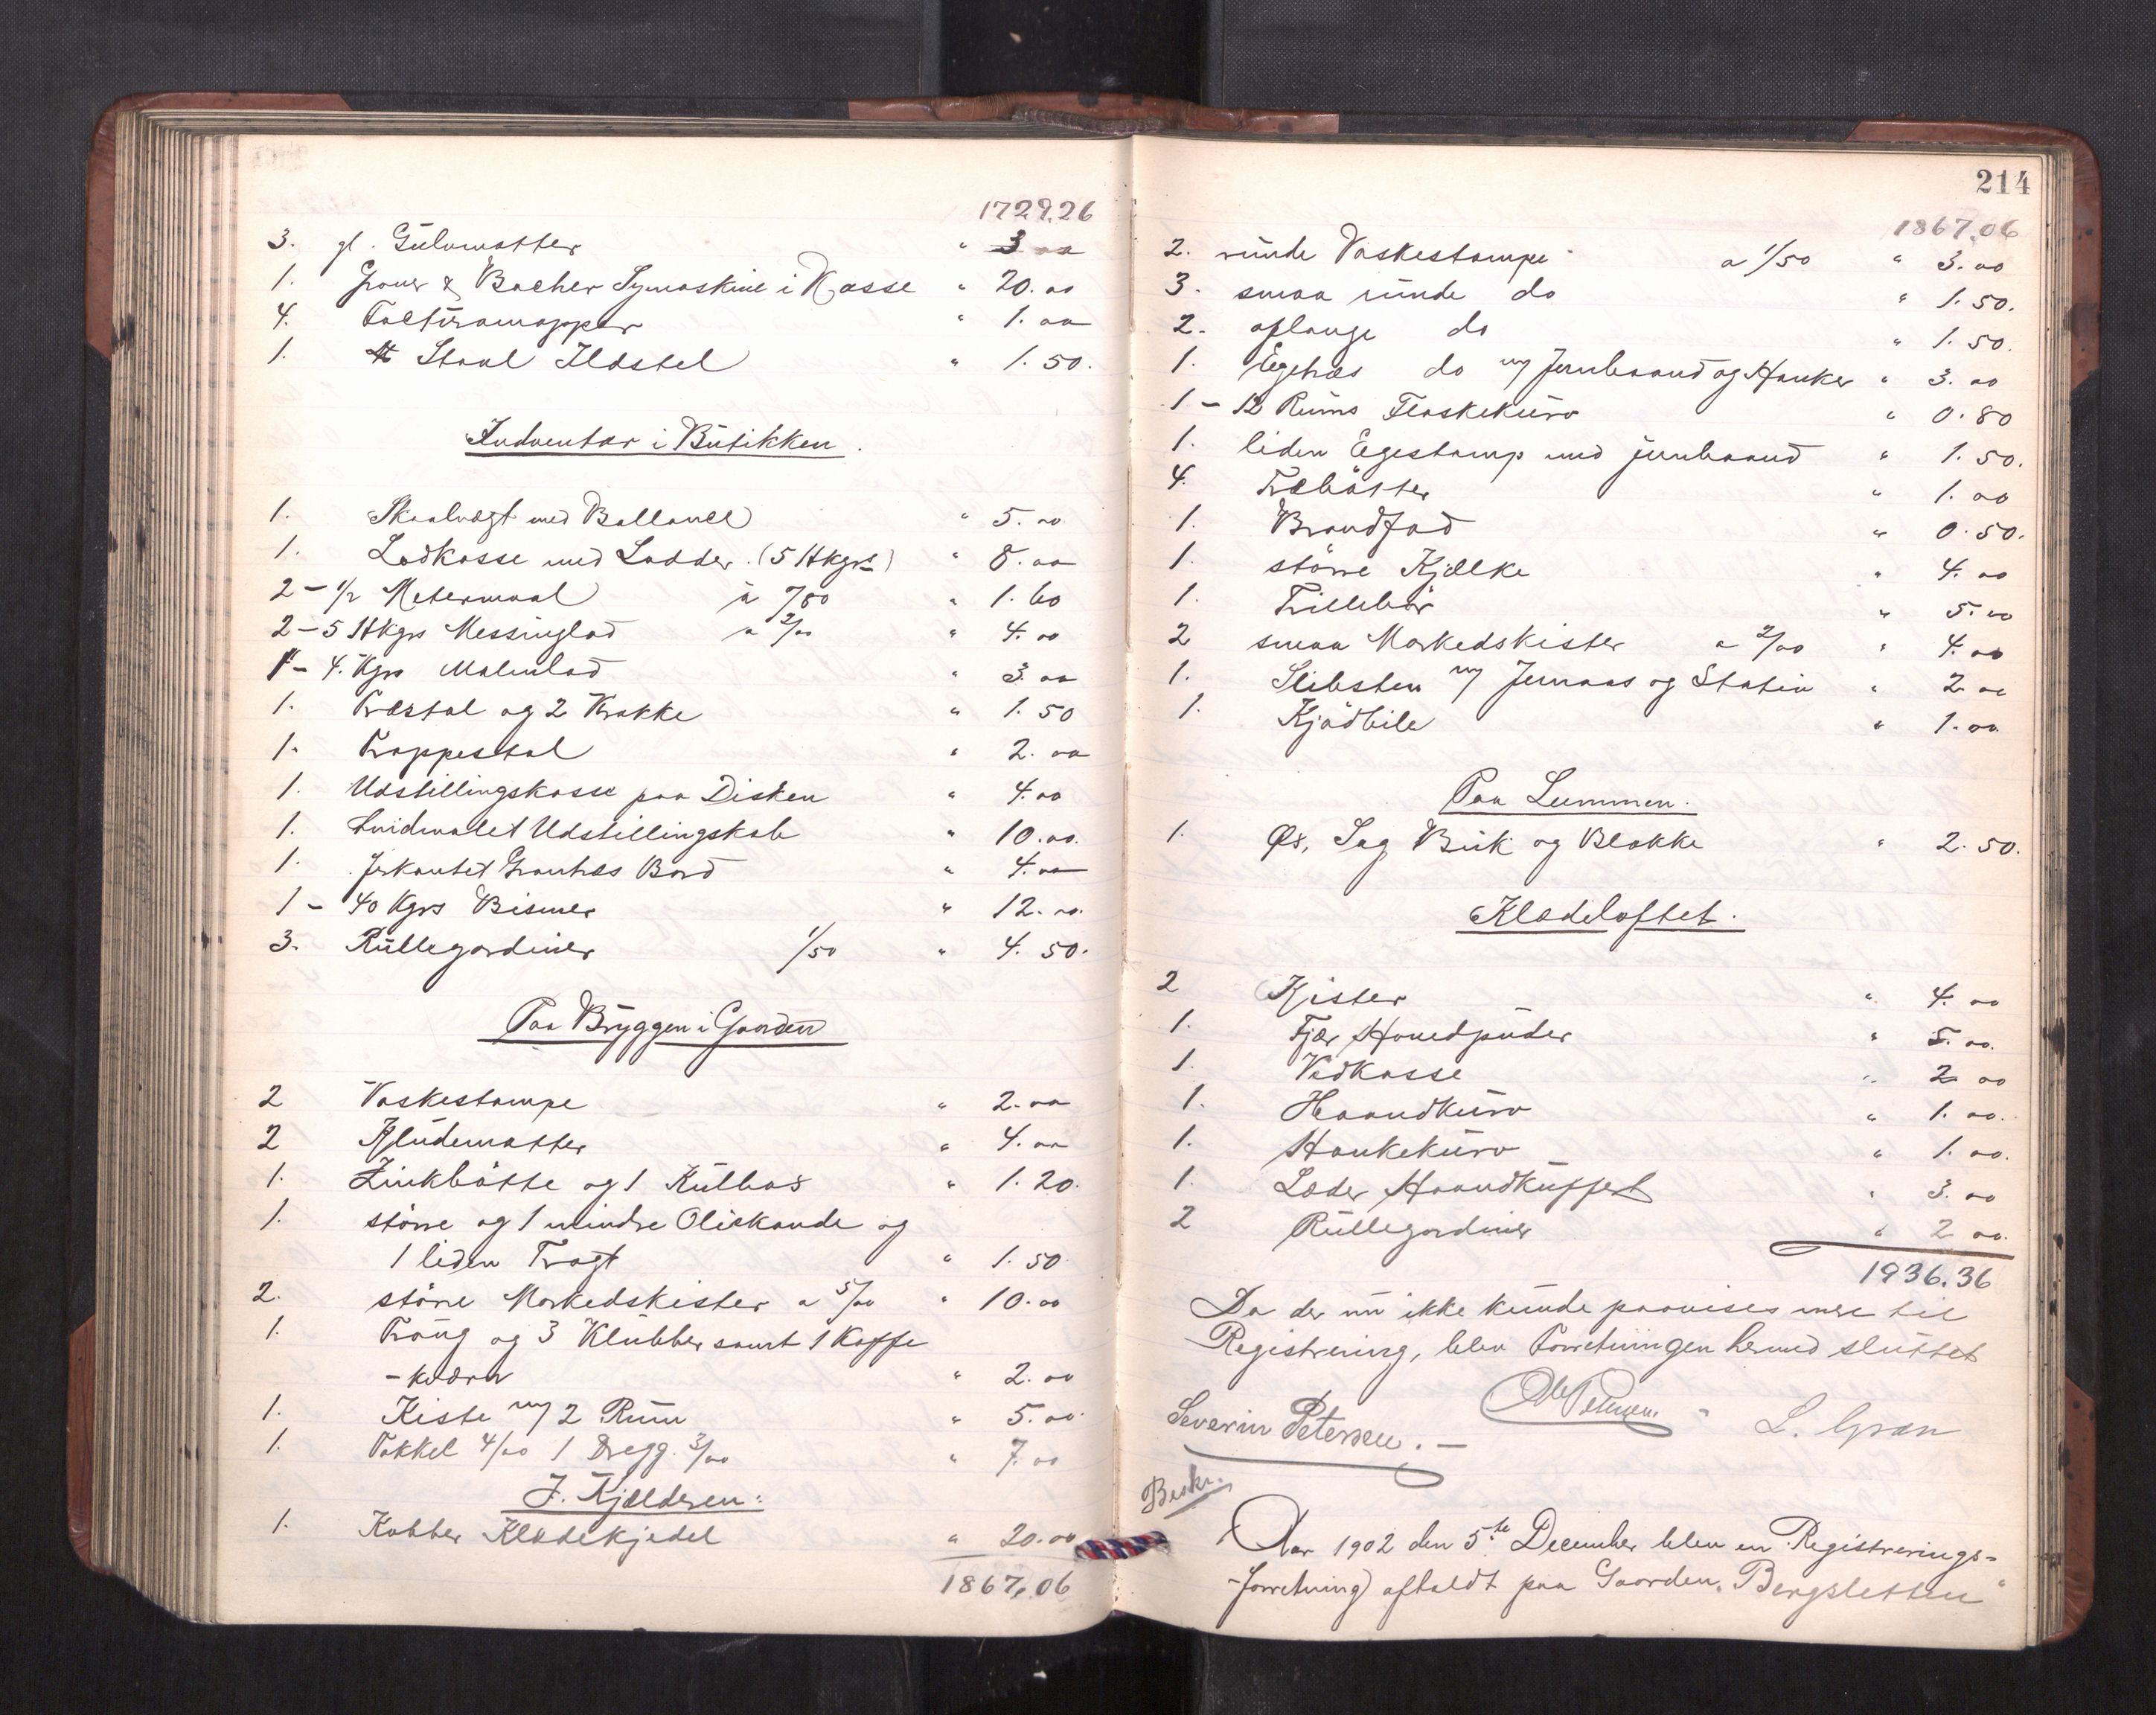 1729.26
3. gl. Gulvmatter " 3 00
1. Grover & Bacher Symaskine i Kasse " 20.00
4. Facturamapper " 1.00
1. Staal Ildstel " 1.50.
Indventar i Butikken.
1. Skaalvægt med Ballance " 5.00
1. Lodkasse med Lodder. (5 Hkgrs) " 8.00
2 - 1/2 Metermaal à /80 " 1.60
2 - 5 Hkgrs Messinglod a 2/00 " 4.00
1 - 4. Kgrs Malmlod " 3.00
1. Træstol og 2 Krakke " 1.50
1. Trappestol " 2.00
1. Udstillingskasse paa Disken " 4.00
1. hvidmalet Udstillingskab " 10.00.
1. firkantet Grantræs Bord " 4.00
1 - 40 Kgrs Bismer " 12.00.
3. Rullegardiner 1/50 " 4.50.
Paa Bryggen i Gaarden
2 Vaskestampe " 2.00
2 Kludematter " 4.00
1. Zinkbøtte og 1 Kulbas " 1.20.
1. større og 1 mindre Oliekande og
1 liden Tragt " 1.50
2. større Markedskister a 5/00 " 10.00
1. Traug og 3 Klubber samt 1 Kaffe
- kværn " 2.00
1. Kiste m/ 2 Rum " 5.00
1. Takkel 4/00 1 Dregg. 3/00 " 7.00
I. Kjælderen:
1. Kobber Klædekjedel " 20.00
1867.06
214
1867.06
2. runde Vaskestampe a 1/50 " 3.00
3. smaa runde do " 1.50.
2. aflange do " 1.50.
1. Egetræs do m/ Jernbaand og Hanker " 3.00
1 - 12 Rums Flaskekurv " 0.80
1. liden Egestamp med jernbaand " 1.50.
4. Træbøtter " 1.00
1. Brandfad " 0.50.
1. større Kjælke " 4.00
1. Trillebør " 5.00
2 smaa Markedskister a 2/00 " 4.00
1. Slibsten m/ Jernaas og Stativ " 2.00
1. Kjødbile " 1.00.
Paa Lemmen.
1. Øx, Sag Buk og Blokke " 2.50.
Klædeloftet.
2 Kister " 4.00
1. Fjær Hovedpuder " 5.00.
1. Vedkasse " 2.00
1. Haandkurv " 1.00.
1. Hankekurv " 1.00.
1. Læder Haandkuffert " 3.00
2 Rullegardiner " 2.00.
1936.36
Da der nu ikke kunde paavises mere til
Registrering, blev Forretningen hermed sluttet
Severin Petersen. - Ole Petersen. L. Gran
Beskr.
Aar 1902 den 5.te December blev en Registrerings-
-forretning afholdt paa Gaarden "Bergsletten"